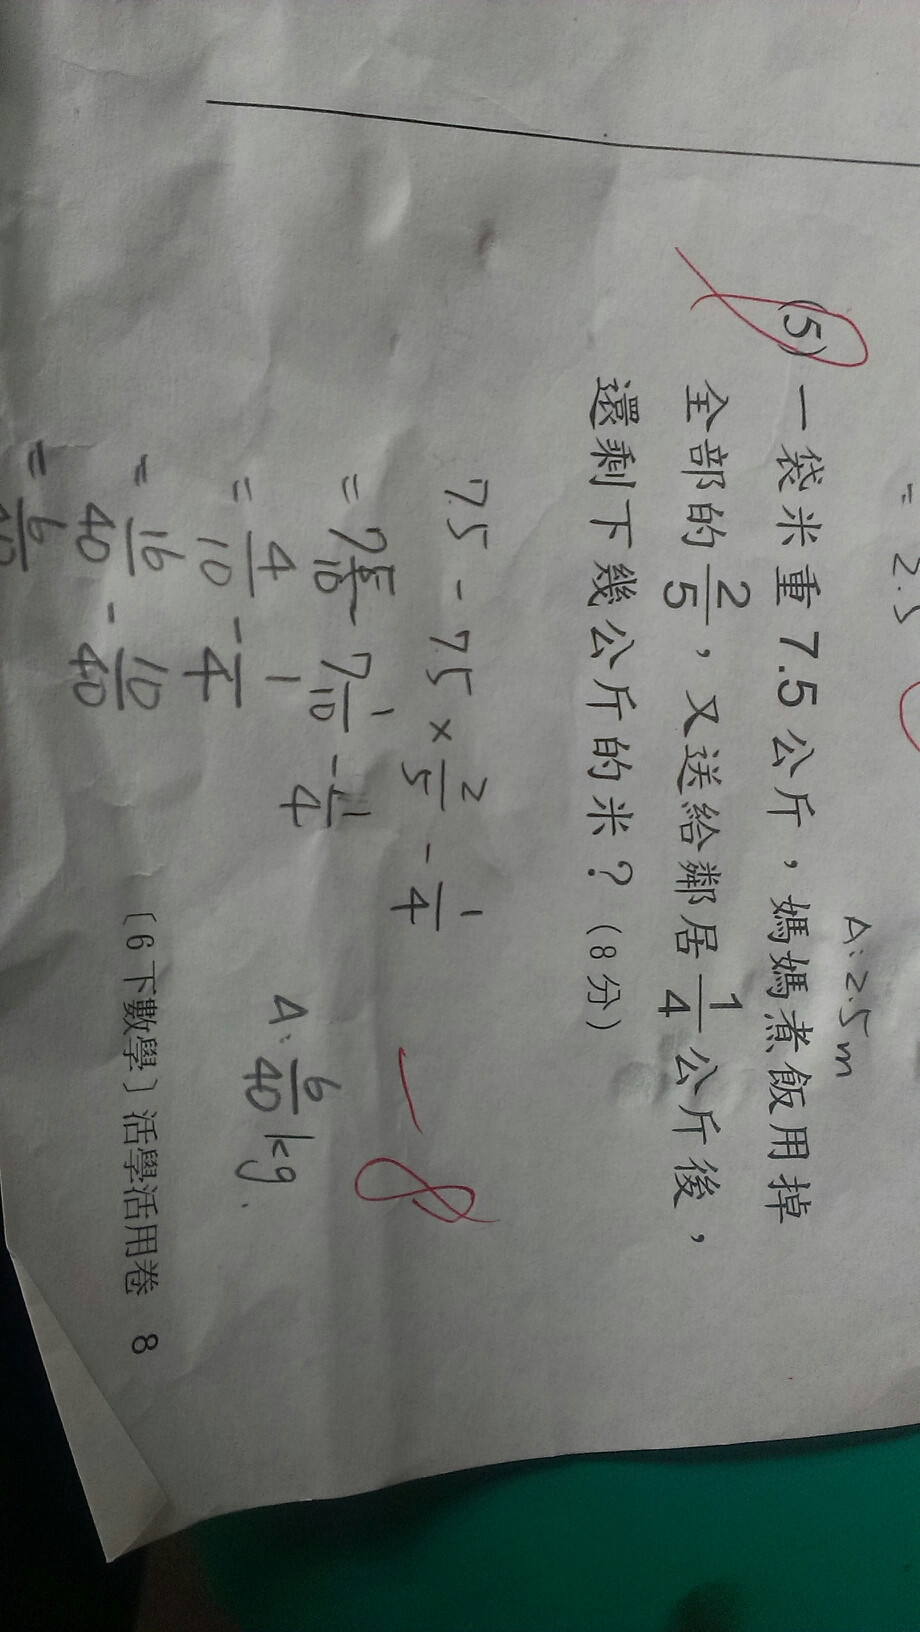 = 2.5
A: 2.5 m
(5) 一袋米重 7.5 公斤，媽媽煮飯用掉
全部的 2/5，又送給鄰居 1/4 公斤後，
還剩下幾公斤的米？（8分）
7.5 - 7.5 × 2/5 - 1/4
= 7 5/10 - 7 1/10 - 1/4
= 4/10 - 1/4
= 16/40 - 10/40
= 6/40
A: 6/40 kg.
- 8
〔6下數學〕活學活用卷 8